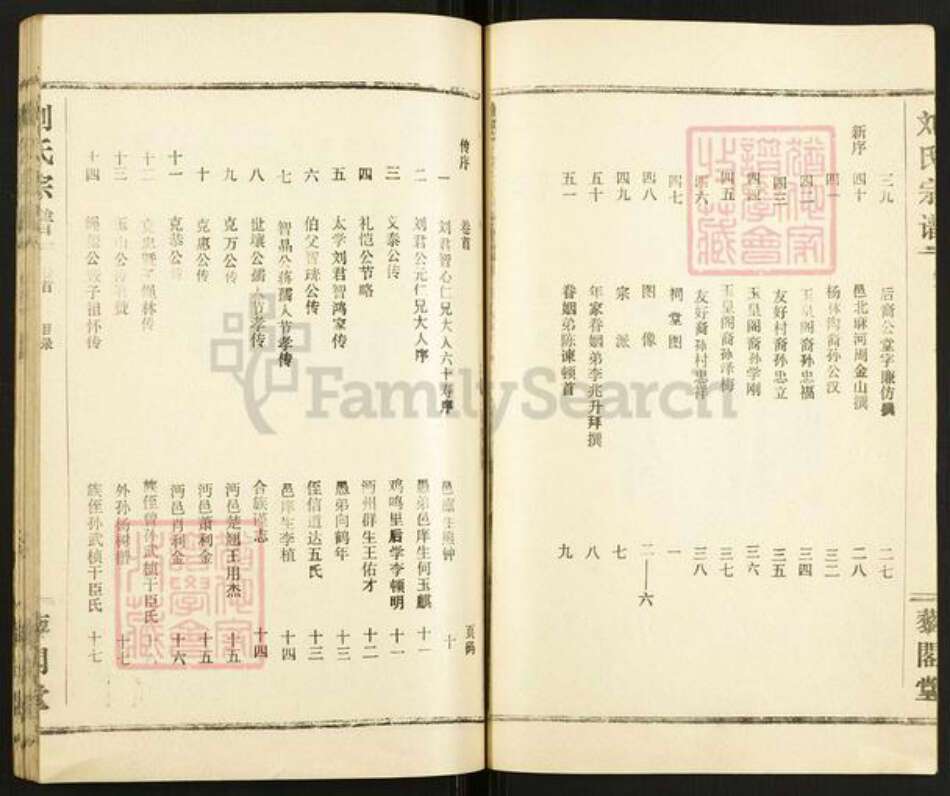 刘氏宗谱
藜閣堂
三九 后裔公堂字赚仿撰 二七
新序
四十 邑北麻河周金山撰 二八
四一 杨林沟裔孙公汉 三二
四二 玉皇阁裔孙忠福 三四
四三 友好村裔孙忠立 三五
四四 玉皇阁裔孙学刚 三六
四五 玉皇阁裔孙泽梅 三七
四六 友好裔孙村忠洋 三八
四七 祠堂图 一
四八 图像 二——六
四九 宗派 七
五十 年家眷姻弟李兆升拜撰 八
五一 眷姻弟陈谏顿首 九
传序 卷首 页码
一 刘君智心仁兄大人六十寿序 邑庠生 钟 十
二 刘君公元仁兄大人序 愚弟邑庠生何玉麒 十一
三 义泰公传 鸡鸣里后学李顿明 十一
四 礼恺公节略 沔州群生王佑才 十二
五 太学刘君智鸿家传 愚弟向鹤年 十三
六 伯父智 公传 侄信道达五氏 十三
七 智晶公蒋孺人节孝传 邑庠生李植 十四
八 世壤公 节孝传 合族谨志 十四
九 克万公传 沔邑楚翘王用杰 十五
十 克惠公传 沔邑萧利金 十五
十一 克恭公传 沔邑肖利金 十六
十二 传 族侄曾孙武植干臣氏
十三 玉山公 赞 外孙杨树 十七
十四 公 子祖怀传 族侄孙武植干臣氏 十七
刘氏宗谱 卷首 目录
FamilySearch